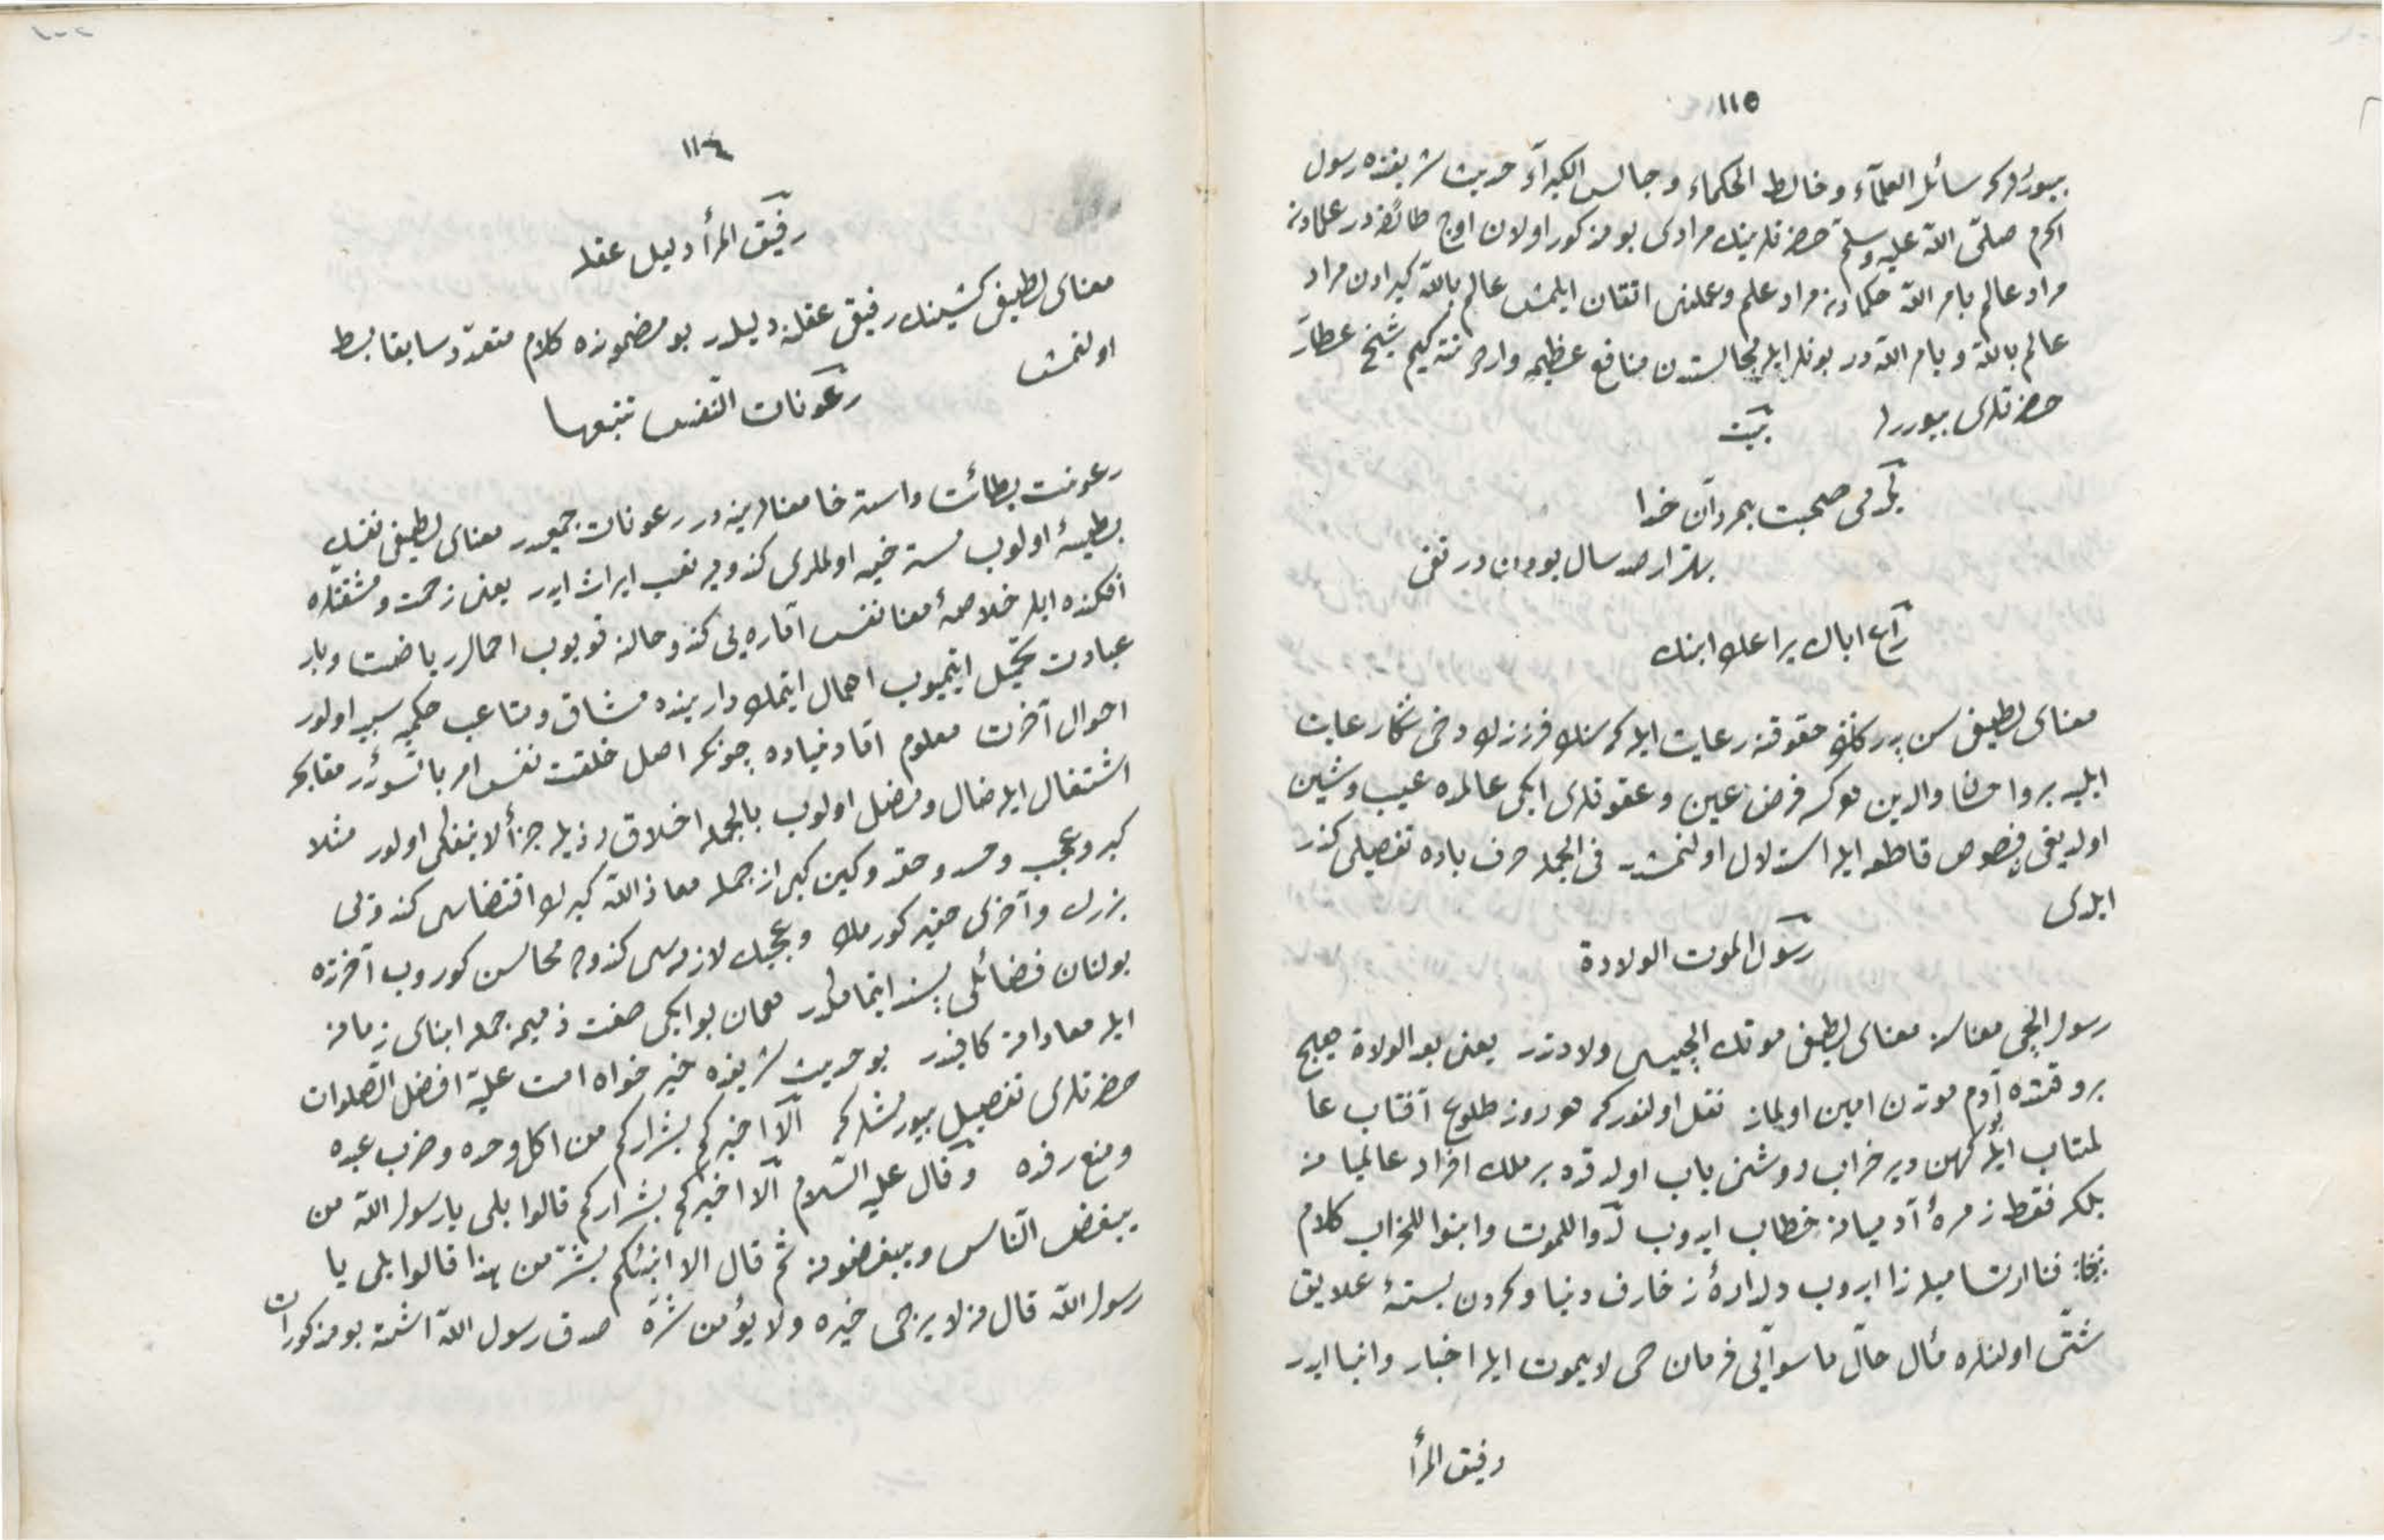 ١١٥
بيورركه سائل العلمآء وخالط الحكماء وجالس الكبرآء حديث شريفنده رسول
اكرم صلّى اللّه عليه وسلّم حضرتلرينك مرادى بو مذكور اولان اوچ طائفه در علمادن
مراد عالم بامر اللّه حكمادن مراد علم وعملنى اتقان ايلمش عالم باللّه كبرادن مراد
عالم باللّه وبامر اللّه در بونلر ايله مجالستدن منافع عظيمه واردر نته كيم شيخ عطار
حضرتلرى بيوررلر بيت
يكدمى صحبت بمردان خدا
بهتر از صد سال بودن در تقى
راع اباك يراعك ابنك
معناى لطيفى سن پدركك حقوقنه رعايت ايله كه سنك فرزندك دخى سكا رعايت
ايليه بر واحسان والدين موكه فرض عين وعقوقلرى ايكى عالمده عيب وشين
اولديغى نصوص قاطعه ايله استدلال اولنمشدر فى الجمله حرف باده تفصيلى كذر
ايلدى
رسول الموت الولادة
رسول ايلچى معناسنه معناى لطيفى موتك ايلچيسى ولادتدر يعنى بعد الولادة هيچ
بر وقتده آدم موتدن امين اولماز نقل اولنوركه هر روز طلوع آفتاب عا
لمتاب ايله بو كهن دير خراب روشنى ياب اولدقده بر ملك افراد عالميانه
بلكه فقط زمرۀ آدميانه خطاب ايدوب لدوا للموت وابنوا للخراب كلام
فنا ايدوب دلدادۀ زخارف دنيا وكردن بستۀ علايق
شتّى اولنلره مآل حال ماسوايى فرمان حى لايموت ايله اخبار وانبا ايدر
رفيق المرأ
١١٤
رفيق المرأ دليل عقله
معناى لطيفى كشينك رفيقى عقلنه دليلدر بو مضمونده كلام متعدّد سابقا بسط
اولنمش
رعونات النّفس تتبعها
رعونت بطائت واسترخا معنالرينه در رعونات جمعيدر معناى لطيفى نفسك
بطيئۀ اولوب مسترخيه اولملرى كندويه تعب ايراث ايدر يعنى زحمت ومشقتلره
افكنده ايلر خلاصۀ معنا نفس امّاره يى كندو حالنه قويوب احمال رياضت وبار
عبادت تحميل ايتميوب اهمال ايتمك دارينده مشاق ومتاعب چكمكه سبب اولور
احوال آخرت معلوم امّا دنياده چونكه اصل خلقت نفس امر بالسّوءدر مقابحه
اشتغال ايله ضال ومضل اولوب بالجمله اخلاق رذيله جزأ لا ينفكى اولور مثلا
كبر وعجب وحسد وحقد وكين كبى از جمله معاذ اللّه كبرك اقتضاسى كندوبى
بزرك وآخرى حقير كورمك وعجبك لازمه سى كندوده محاسن كوروب آخرنده
بولنان فضائلى پسند ايتمامكدر همان بو ايكى صفت ذميمه جمله ابناى زمانه
ايله معاداته كافيدر بو حديث شريفده خير خواه امت عليه افضل الصّلوات
حضرتلرى تفصيل بيورمشلركه ألا اخبركم بشراركم من اكل وحده وضرب عبده
ومنع رفده وقال عليه السّلام ألا اخبركم بشراركم قالوا بلى يا رسول اللّه من
يبغض النّاس ويبغضونه ثم قال الا انبئكم بشر من هذا قالوا بلى يا
رسول اللّه قال من لا يرجى خيره ولا يؤمن شرّه صدق رسول اللّه اشته بو مذكورات